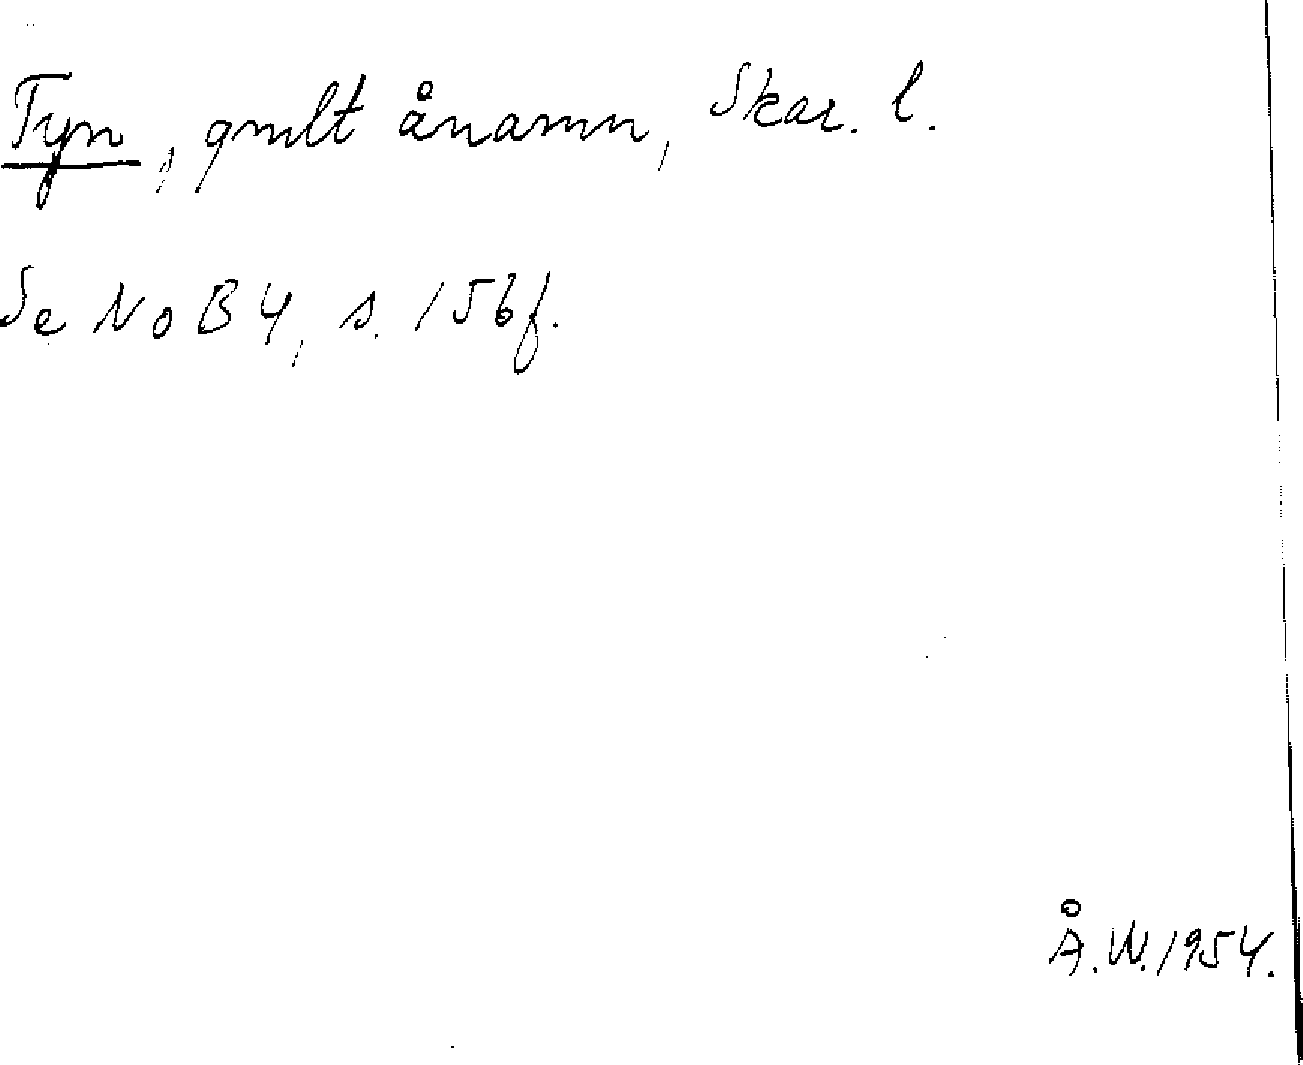 Tyn, gmlt ånamn, Skar. l.
Se NoB 4, s. 156f.
Å.W. 1954.